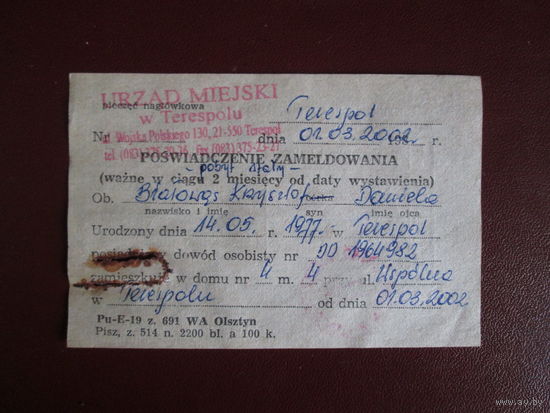 URZĄD MIEJSKI
pieczęć nagłówkowa
w Terespolu
Terespol
ul. Wojska Polskiego 130, 21-550 Terespol
Nr dnia 01.03.2002 r.
tel. (083) 375-20-36 Fax (083) 375-23-21
POŚWIADCZENIE ZAMELDOWANIA
- pobyt stały -
(ważne w ciągu 2 miesięcy od daty wystawienia)
Ob. Białowąs Krzysztof córka Daniela
nazwisko i imię syn imię ojca
Urodzony dnia 14.05. r. 1977. w Terespol
dowód osobisty nr DD 1964982
zamieszkuje w domu nr 4 m. 4 przy ul. Wspólna
w Terespolu od dnia 01.03.2002
Pu-E-19 z. 691 WA Olsztyn
Pisz, z. 514 n. 2200 bl. a 100 k.
ay.by